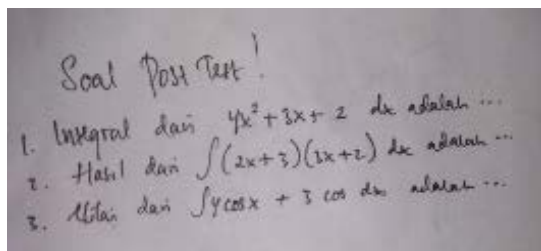 Soal Post Test!
1. Integral dari 4x² + 3x + 2 dx adalah ...
2. Hasil dari ∫(2x+3)(3x+2) dx adalah ...
3. Nilai dari ∫4 cosx + 3 cos dx adalah ...